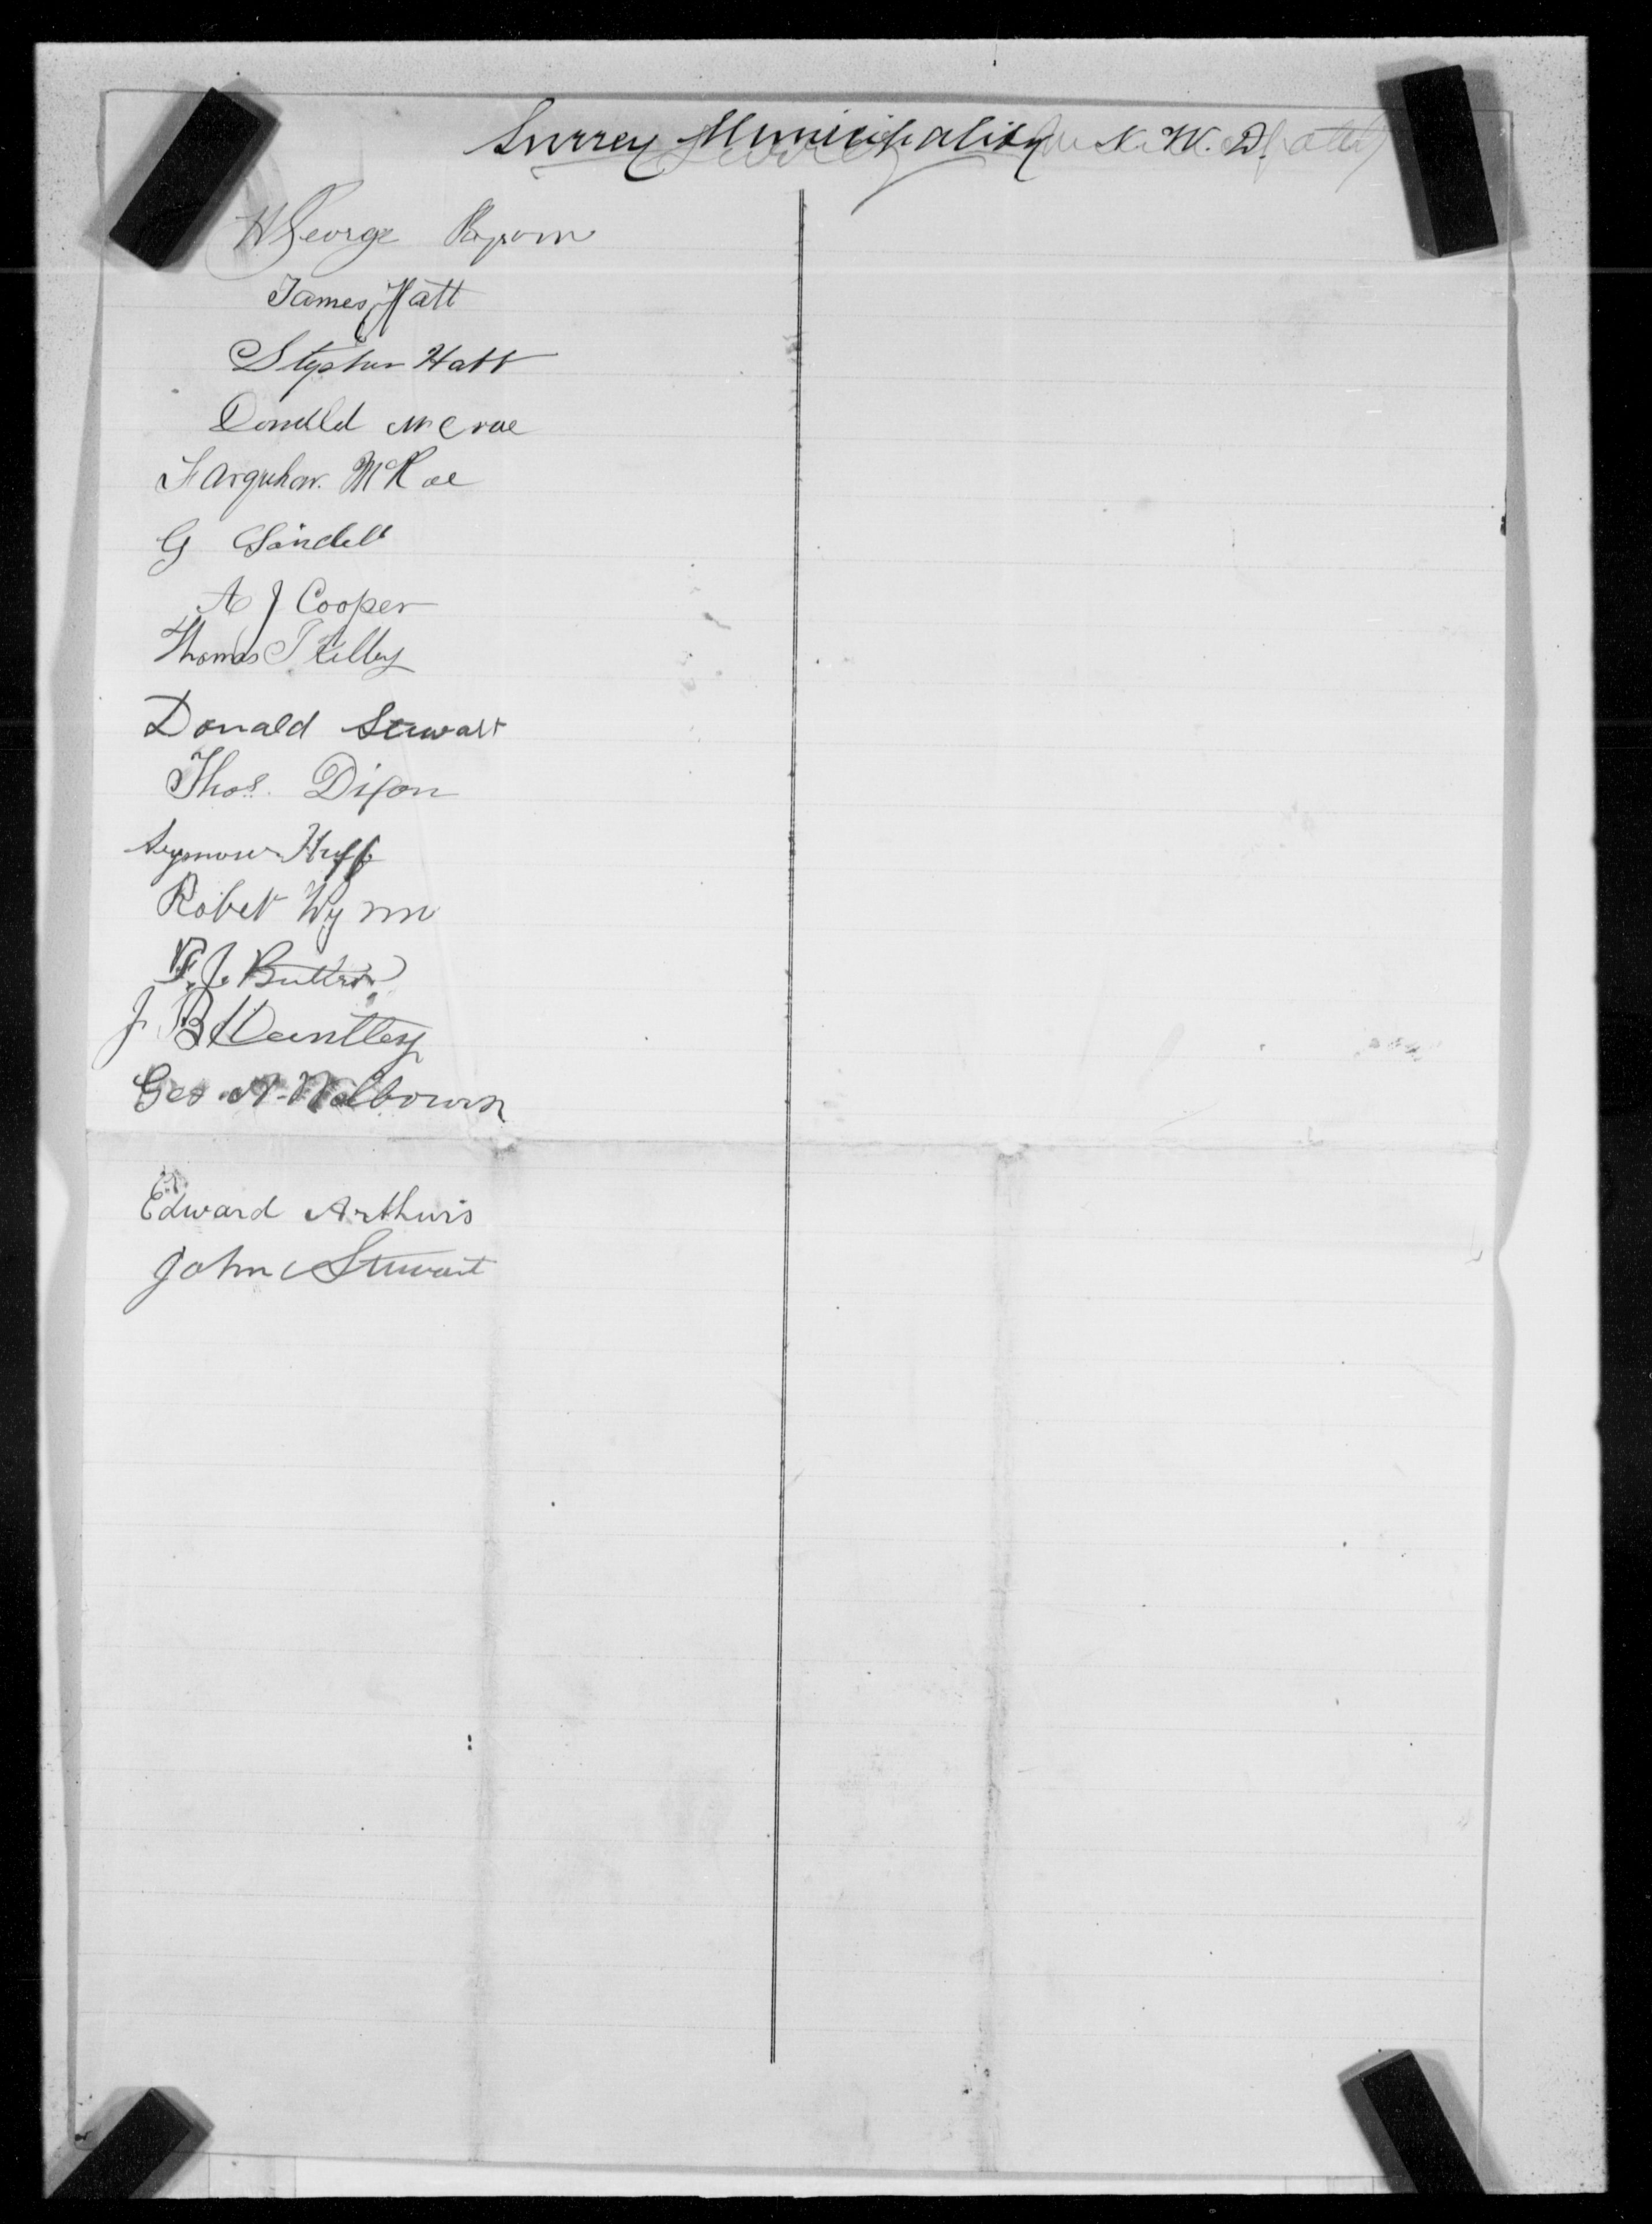 Surrey Municipality N. W. D.
W George
James Hatt
Stephen Hatt
Donelld McCrae
Farquhar. McRae
G Sindell
A J Cooper
Thomas
Donald Stewart
Thos. Dixon
Seymour Huff
Robet Wynn
F. J. Butter
J B Huntley
Geo. A. Welbourn
Edward Arthurs
John Stewart